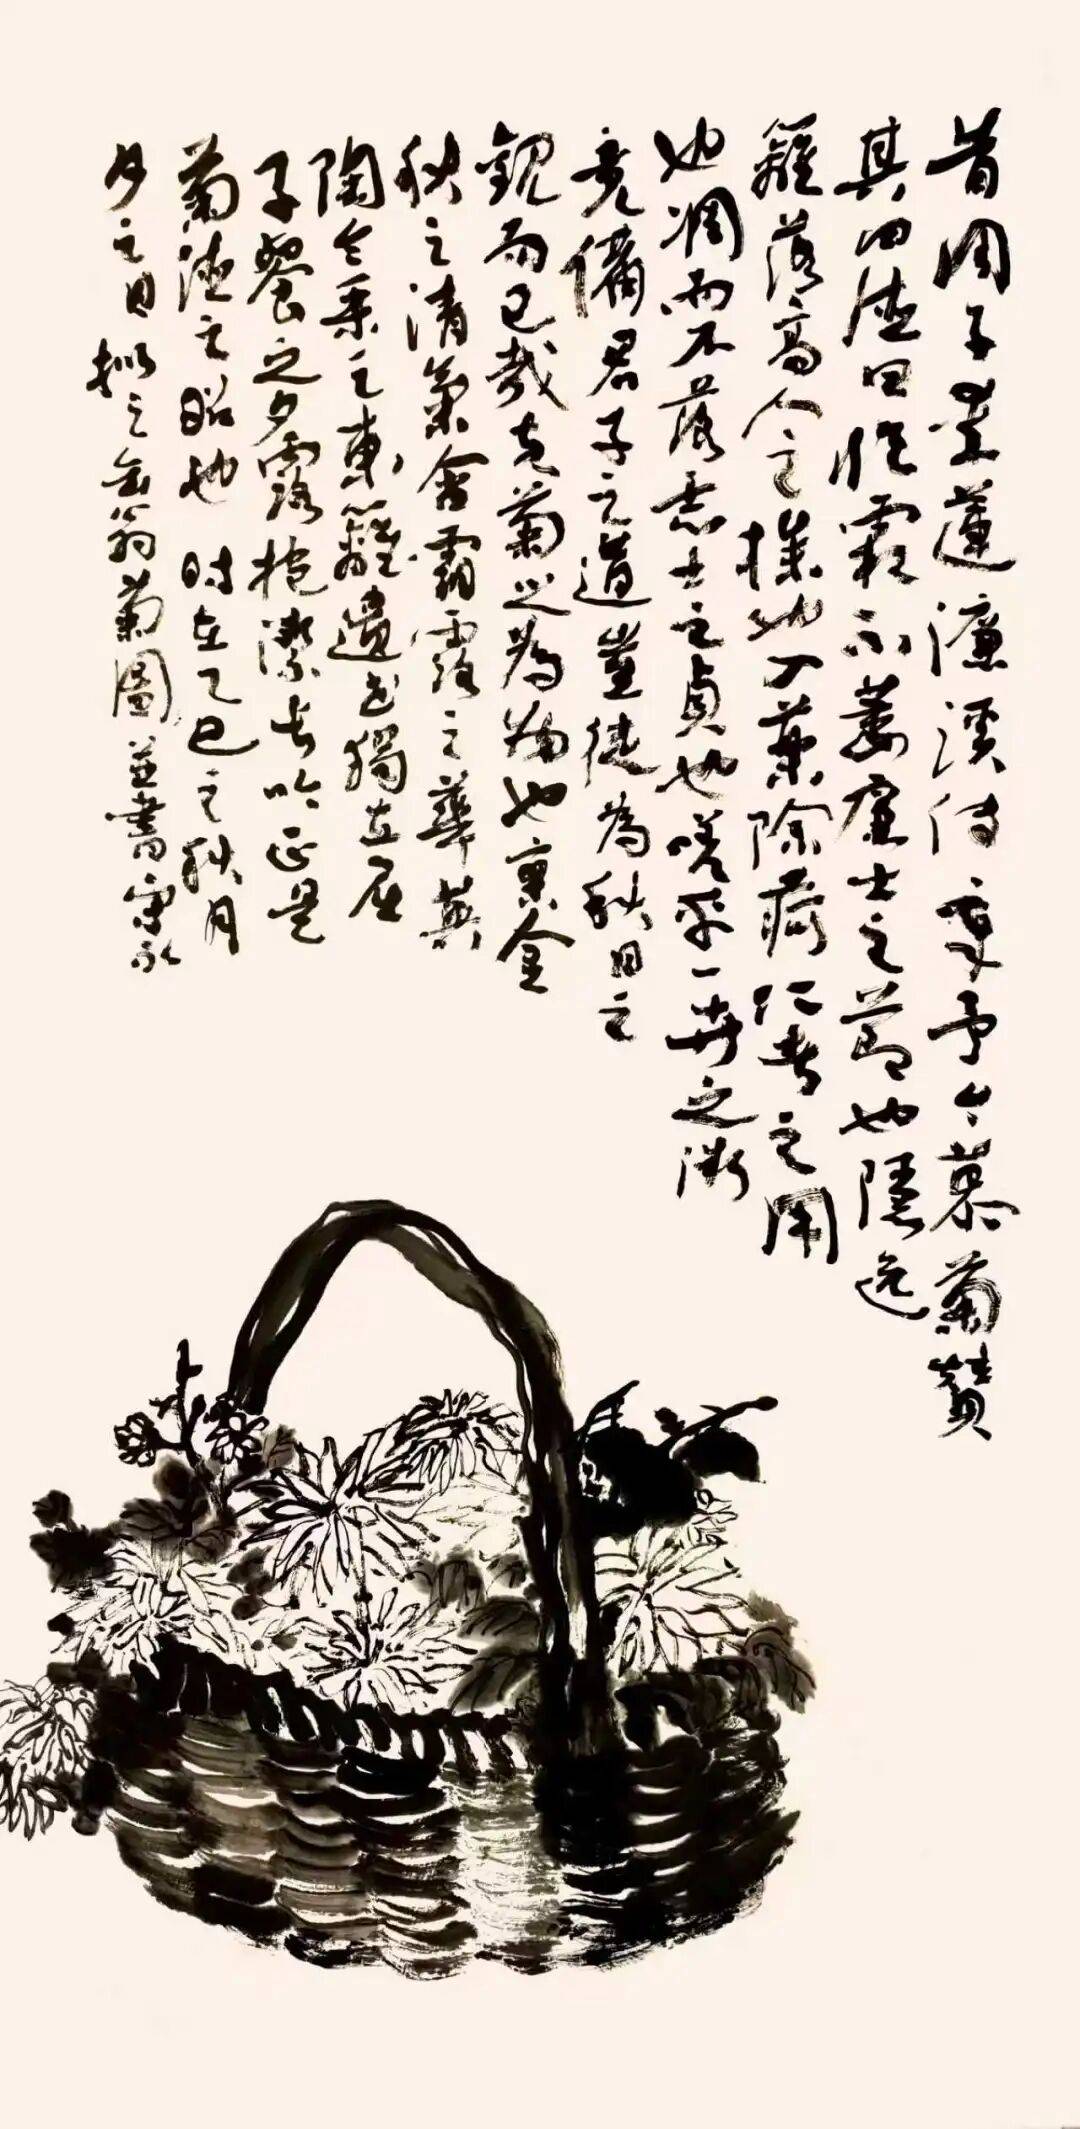 昔周子愛蓮濂溪傳章予今慕菊贊
其四德曰凌霜不萎虛士之節也隱逸
籬落高人之操也入藥除痾仁者之用
也凋而不落志士之貞也嗟乎一卉之微
竟備君子之道豈徒為秋日之
觀而已哉夫菊之為物也稟金
秋之清氣含霜露之華英
陶令采之東籬遺世獨立屈
子餐之夕露抱潔長吟正是
菊德之昭也 時在乙巳之秋月
夕之日擬之缶翁菊圖並書